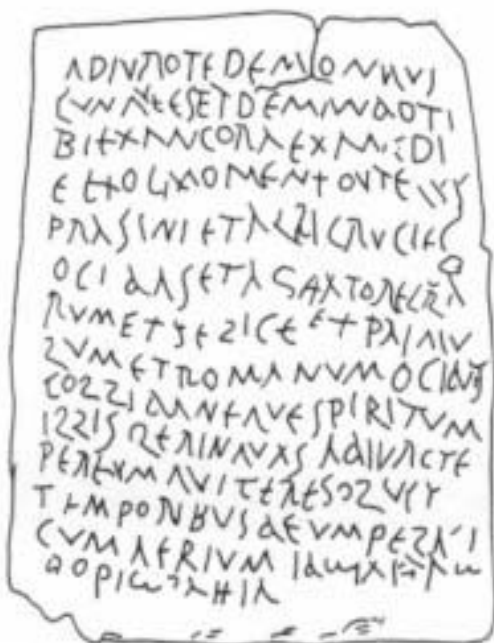 ADIVROTEDEMONQVI
CVNQVEESETDEMANDOTI
BIEXANCORAEXANCDI
EEXOCMOMENTOVTEQVS
PRASINIETALBICRVCIES
OCIDASETAGITATORECLA
RVMETFELICEETPRIMV
LVMETROMANVMOCIDAS
COLLIDANEQVESPIRITVM
ILLISLERINQVASADIVROTE
PEREVMQVITERESOLVIT
TEMPORIBVSDEVMPELAGI
CVMAERIVM ΙΑω